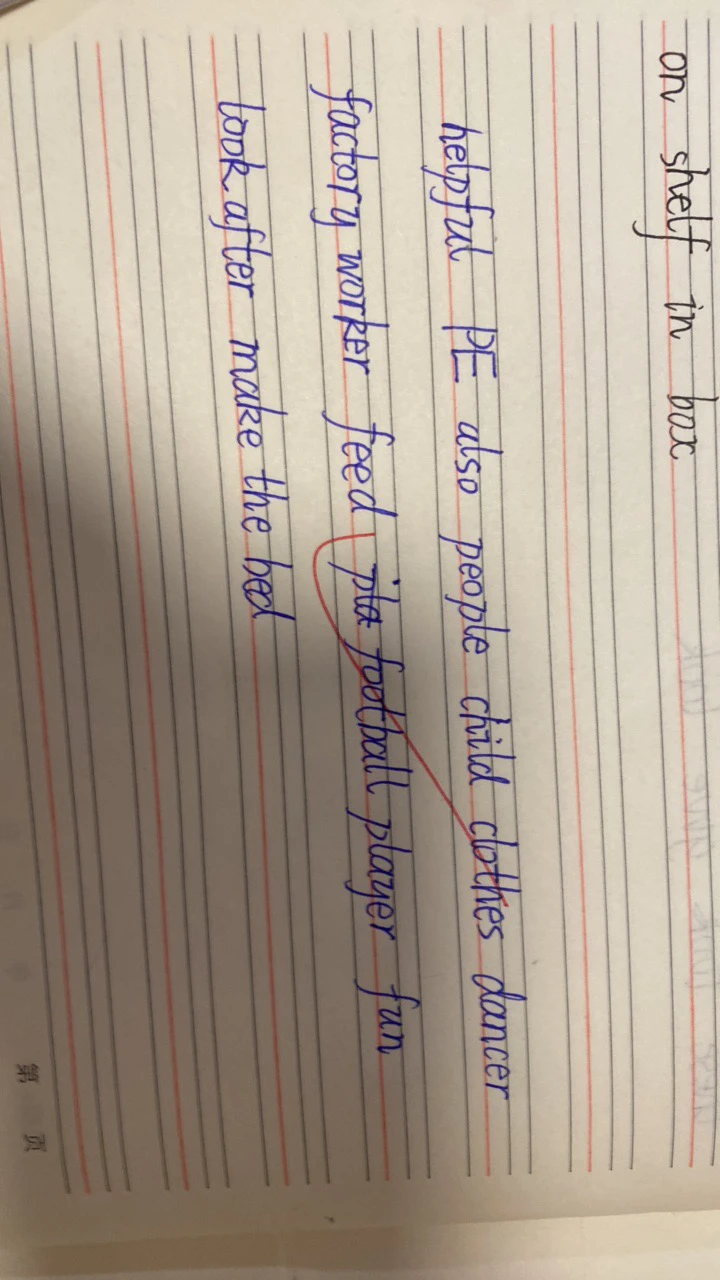 on shelf in box
helpful PE also people child clothes dancer
factory worker feed pla football player fun
look after make the bed
第 页